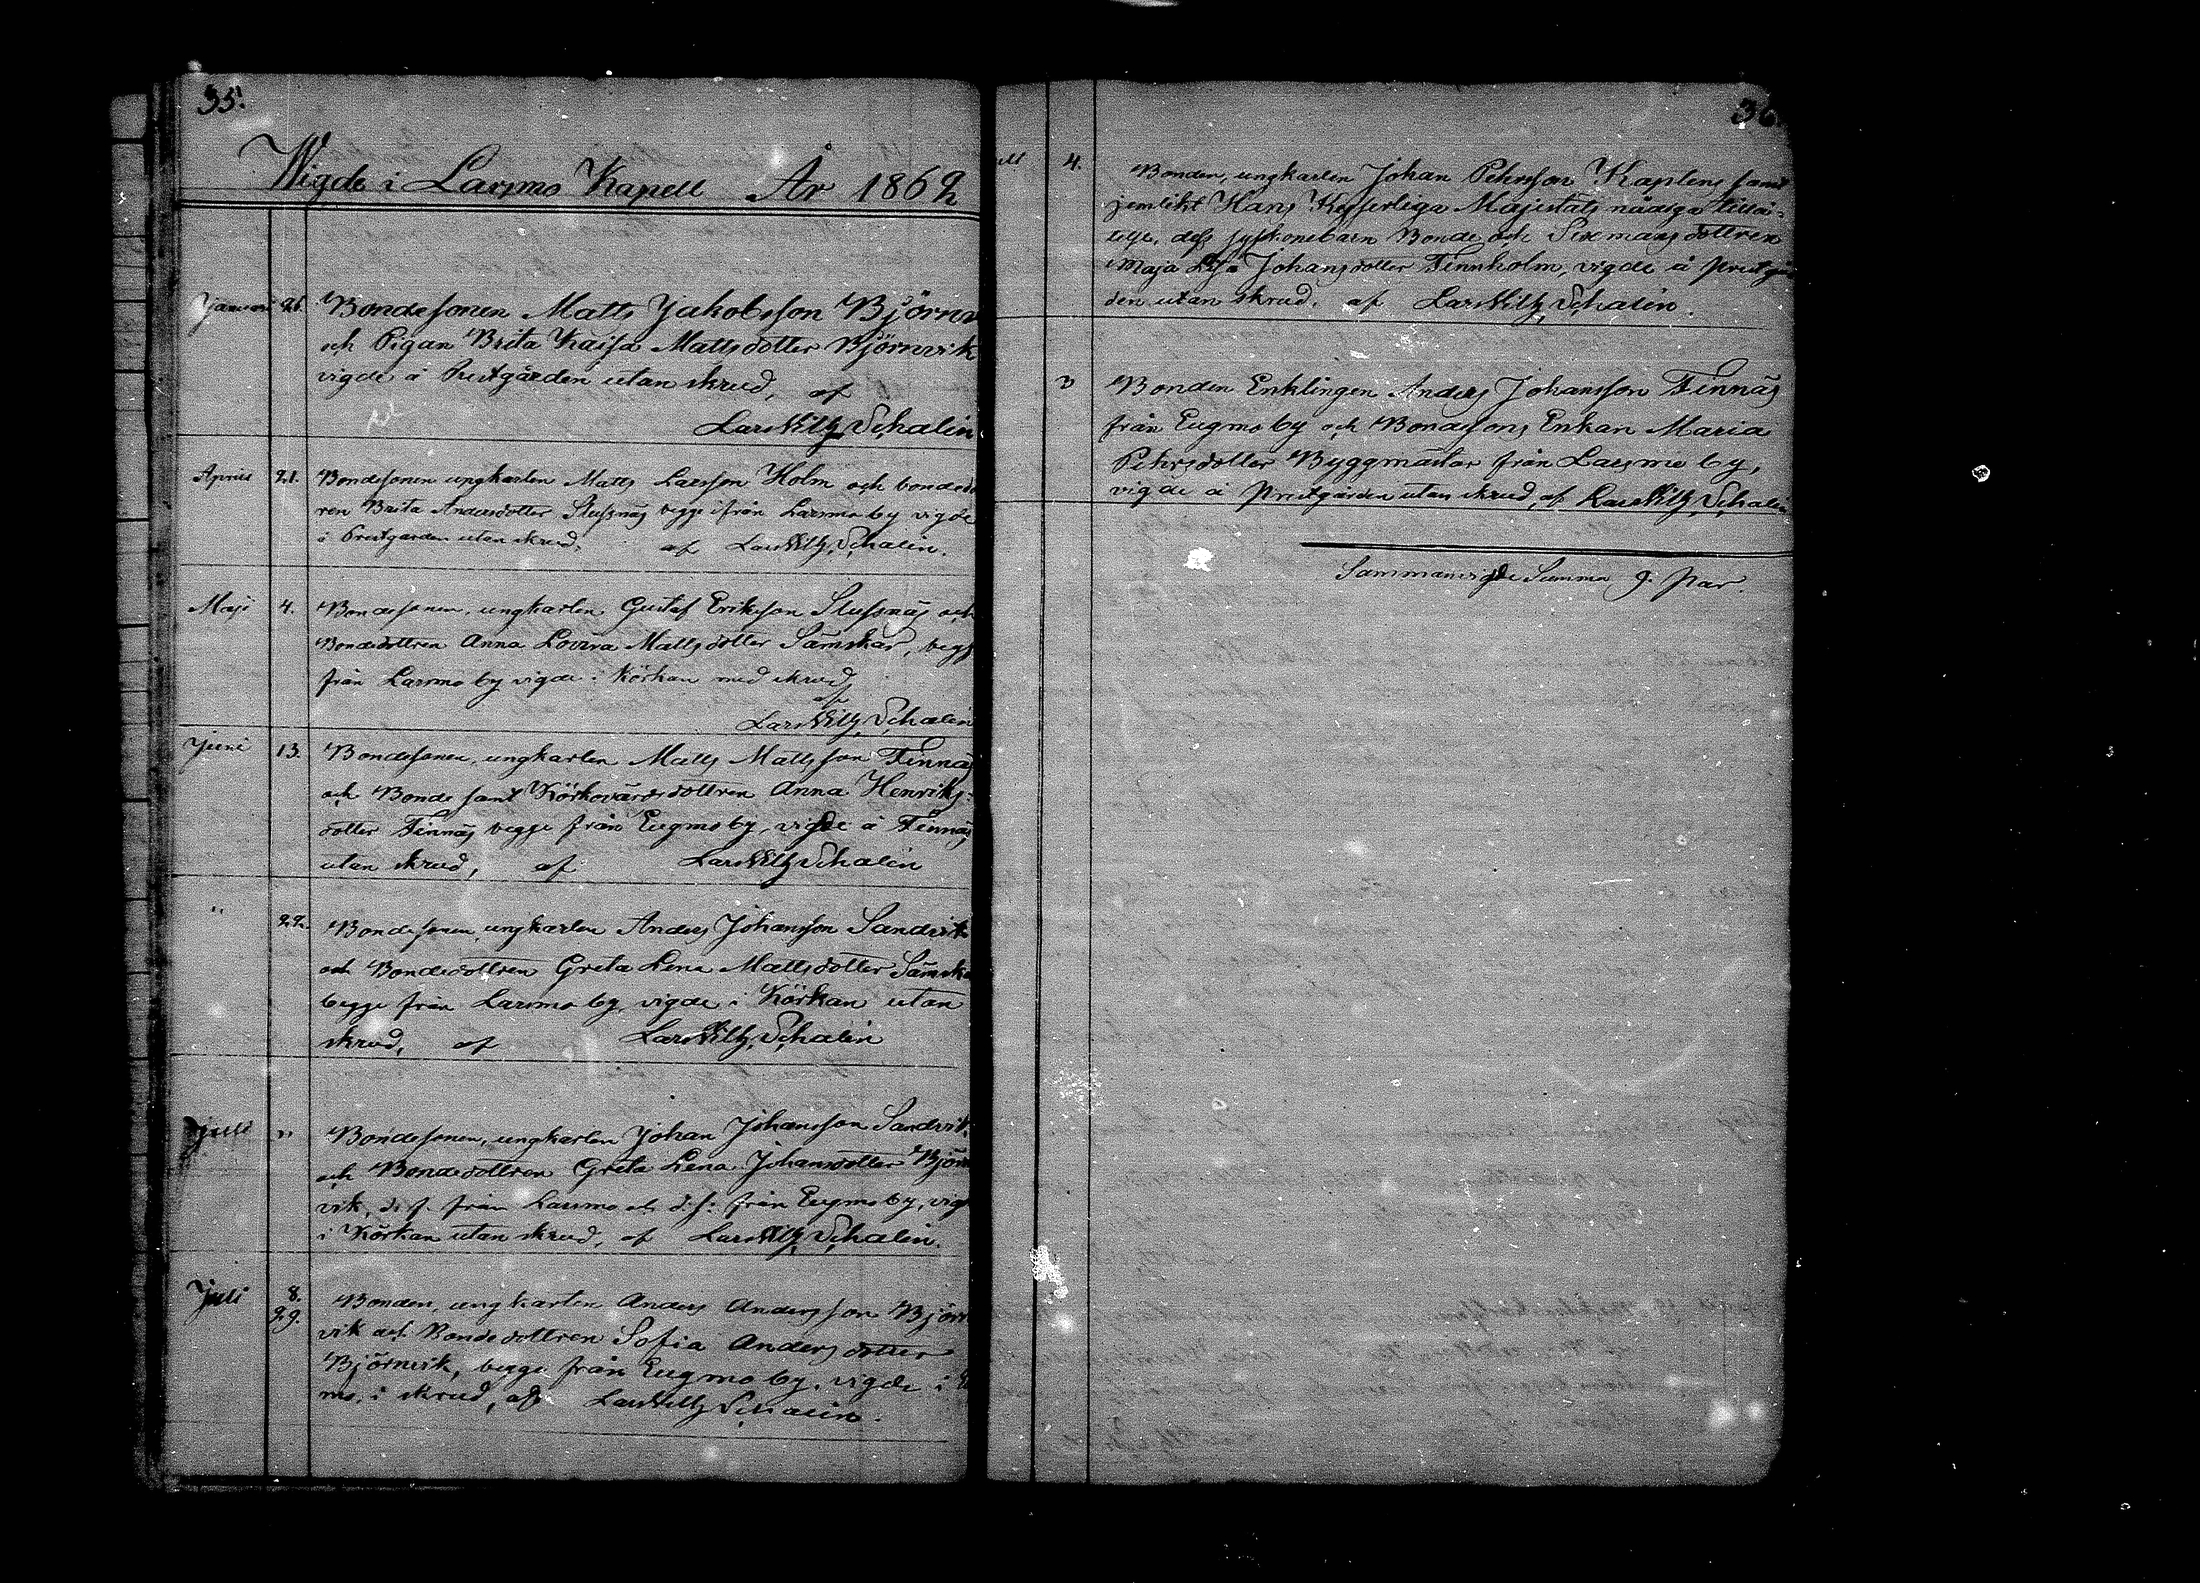 35.
Wigde i Larsmo Kapell År 1862
Januari 26. Bondesonen Matts Jakobsson Björnv
och Pigan Brita Kaisa Mattsdotter Björnvik
vigde å Prestgården utan skrud, af
Lars Wilh. Schalin
April 21. Bondesonen ungkarlen Matts Larsson Holm och bonded
ren Brita Andersdotter Slussnäs begge ifrån Larsmo by vigde
i Prestgården utan skrud, af Lars Wilh. Schalin.
Maji 4. Bondesonen, ungkarlen Gustaf Eriksson Slussnäs och
Bondedottren Anna Lovisa Mattsdotter Sämskar, begg
från Larsmo by vigde i Körkan med skrud
af
Lars Wilh. Schalin
Juni 13. Bondesonen, ungkarlen Matts Mattsson Finnäs
och Bonde samt Körkovärdsdottren Anna Henriks-
dotter Finnäs begge från Eugmo by, vigde å Finnäs
utan skrud, af Lars Wilh Schalin
" 22. Bondesonen, ungkarlen Anders Johansson Sandvik
och Bondedottren Greta Lena Mattsdotter Sämska
begge från Larsmo by, vigde i Körkan utan
skrud, af Lars Wilh. Schalin
" Bondesonen, ungkarlen Johan Johansson Sandvik
och Bondedottren Greta Lena Johansdotter Björn
vik, d. f. från Larsmo och d. s: från Eugmo by, vigd
i Körkan utan skrud, af Lars Wilh. Schalin.
Juli 8.
29. Bonden, ungkarlen Anders Andersson Björn
vik och Bondedottren Sofia Andersdotter
Björnvik, begge från Eugmo by, vigde i
mo, i skrud, af Lars Wilh Schalin.
36.
4. Bonden, ungkarlen Johan Pehrsson Kaplens samt
jemlikt Hans Kejserliga Majestäts nådiga tillå-
telse, dess syskonebarn Bonde och Sexmansdottren
Maja Lisa Johansdotter Finnholm, vigde å prestgår
den utan skrud. af Lars Wilh. Schalin.
Bonden Enklingen Anders Johansson Finnäs
från Eugmo by och Bondesons Enkan Maria
Pehrsdotter Byggmästar från Larsmo by,
vigde å prestgården utan skrud, af Lars Wilh. Schalin
Sammanvigde Summa 9. par.